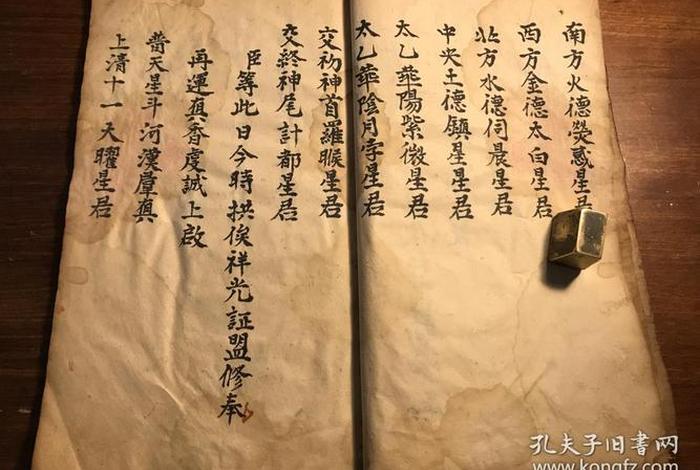 南方火德熒惑星君
西方金德太白星君
北方水德伺晨星君
中央土德鎮星星君
太乙華陽紫微星君
太乙華陰月孛星君
交初神首羅睺星君
交終神尾計都星君
臣等此日今時拱俟祥光証盟修奉
再運真香虔誠上啟
普天星斗河漢羣真
上清十一天曜星君
孔夫子旧书网
www.kongfz.com